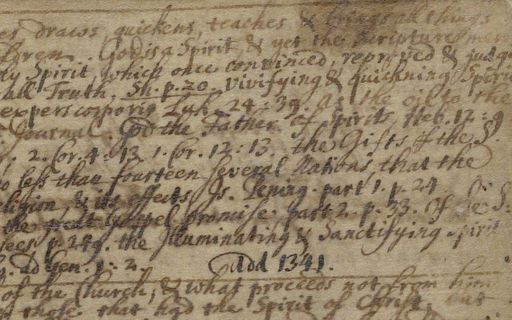 es draws, quickens, teaches & brings all things
ldren. God is a Spirit, & yet the Scriptures
ly Spirit, which once convinced, reproved & judge
all Truth, Sh. p. 20. vivifying & quickning Spirit
expers corporis Luk. 24. 39. As the oil to the
Journal. God the Father of Spirits, Heb. 12. 9
2. Cor. 4. 13. 1. Cor. 12. 13. the Gifts of the S.
o less than fourteen several Nations, that the
eligion, & its effects Is. Pening. part 1. p. 24
the great Gospel promise. part 2. p. 33. If
p. 249. the Illuminating & Sanctifying Spirit
ad Gen. p. 2. Add 1341.
of the Church, & what proceeds not from him
those that had the Spirit of Christ, but